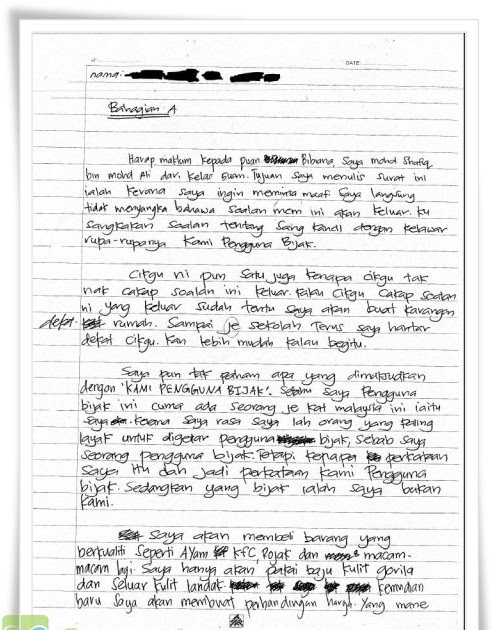 DATE:
nama:
Bahagian A
Harap maklum kepada puan Bibiana, Saya mohd Shafiq
bin mohd Ali dari kelas 5uam. Tujuan saya menulis surat ini
ialah kerana saya ingin meminta maaf. Saya langsung
tidak menyangka bahawa soalan mcm ini akan keluar. Ku
sangkakan soalan tentang Sang kancil dengan kelawar
rupa-rupanya Kami Pengguna Bijak.
Cikgu ni pun satu juga kenapa cikgu tak
nak cakap soalan ini keluar. kalau cikgu cakap soalan
ni yang keluar sudah tentu saya akan buat karangan
dekat rumah. Sampai je sekolah terus saya hantar
dekat cikgu. Kan lebih mudah kalau begitu.
Saya pun tak paham apa yang dimaksudkan
dengan 'KAMI PENGGUNA BIJAK'. Pengguna
bijak ini cuma ada seorang je kat malaysia ini iaitu
saya. Kerana saya rasa saya lah orang yang paling
layak untuk digelar pengguna bijak, sebab saya
seorang pengguna bijak. Tetapi kenapa perkataan
saya itu dah jadi perkataan kami pengguna
bijak. Sedangkan yang bijak ialah saya bukan
kami.
Saya akan membeli barang yang
berkualiti seperti Ayam KFC, Rojak dan macam-
macam lagi. Saya hanya akan pakai baju kulit gorila
dan seluar kulit landak kemudian
baru saya akan membuat perbandingan harga. Yang mane